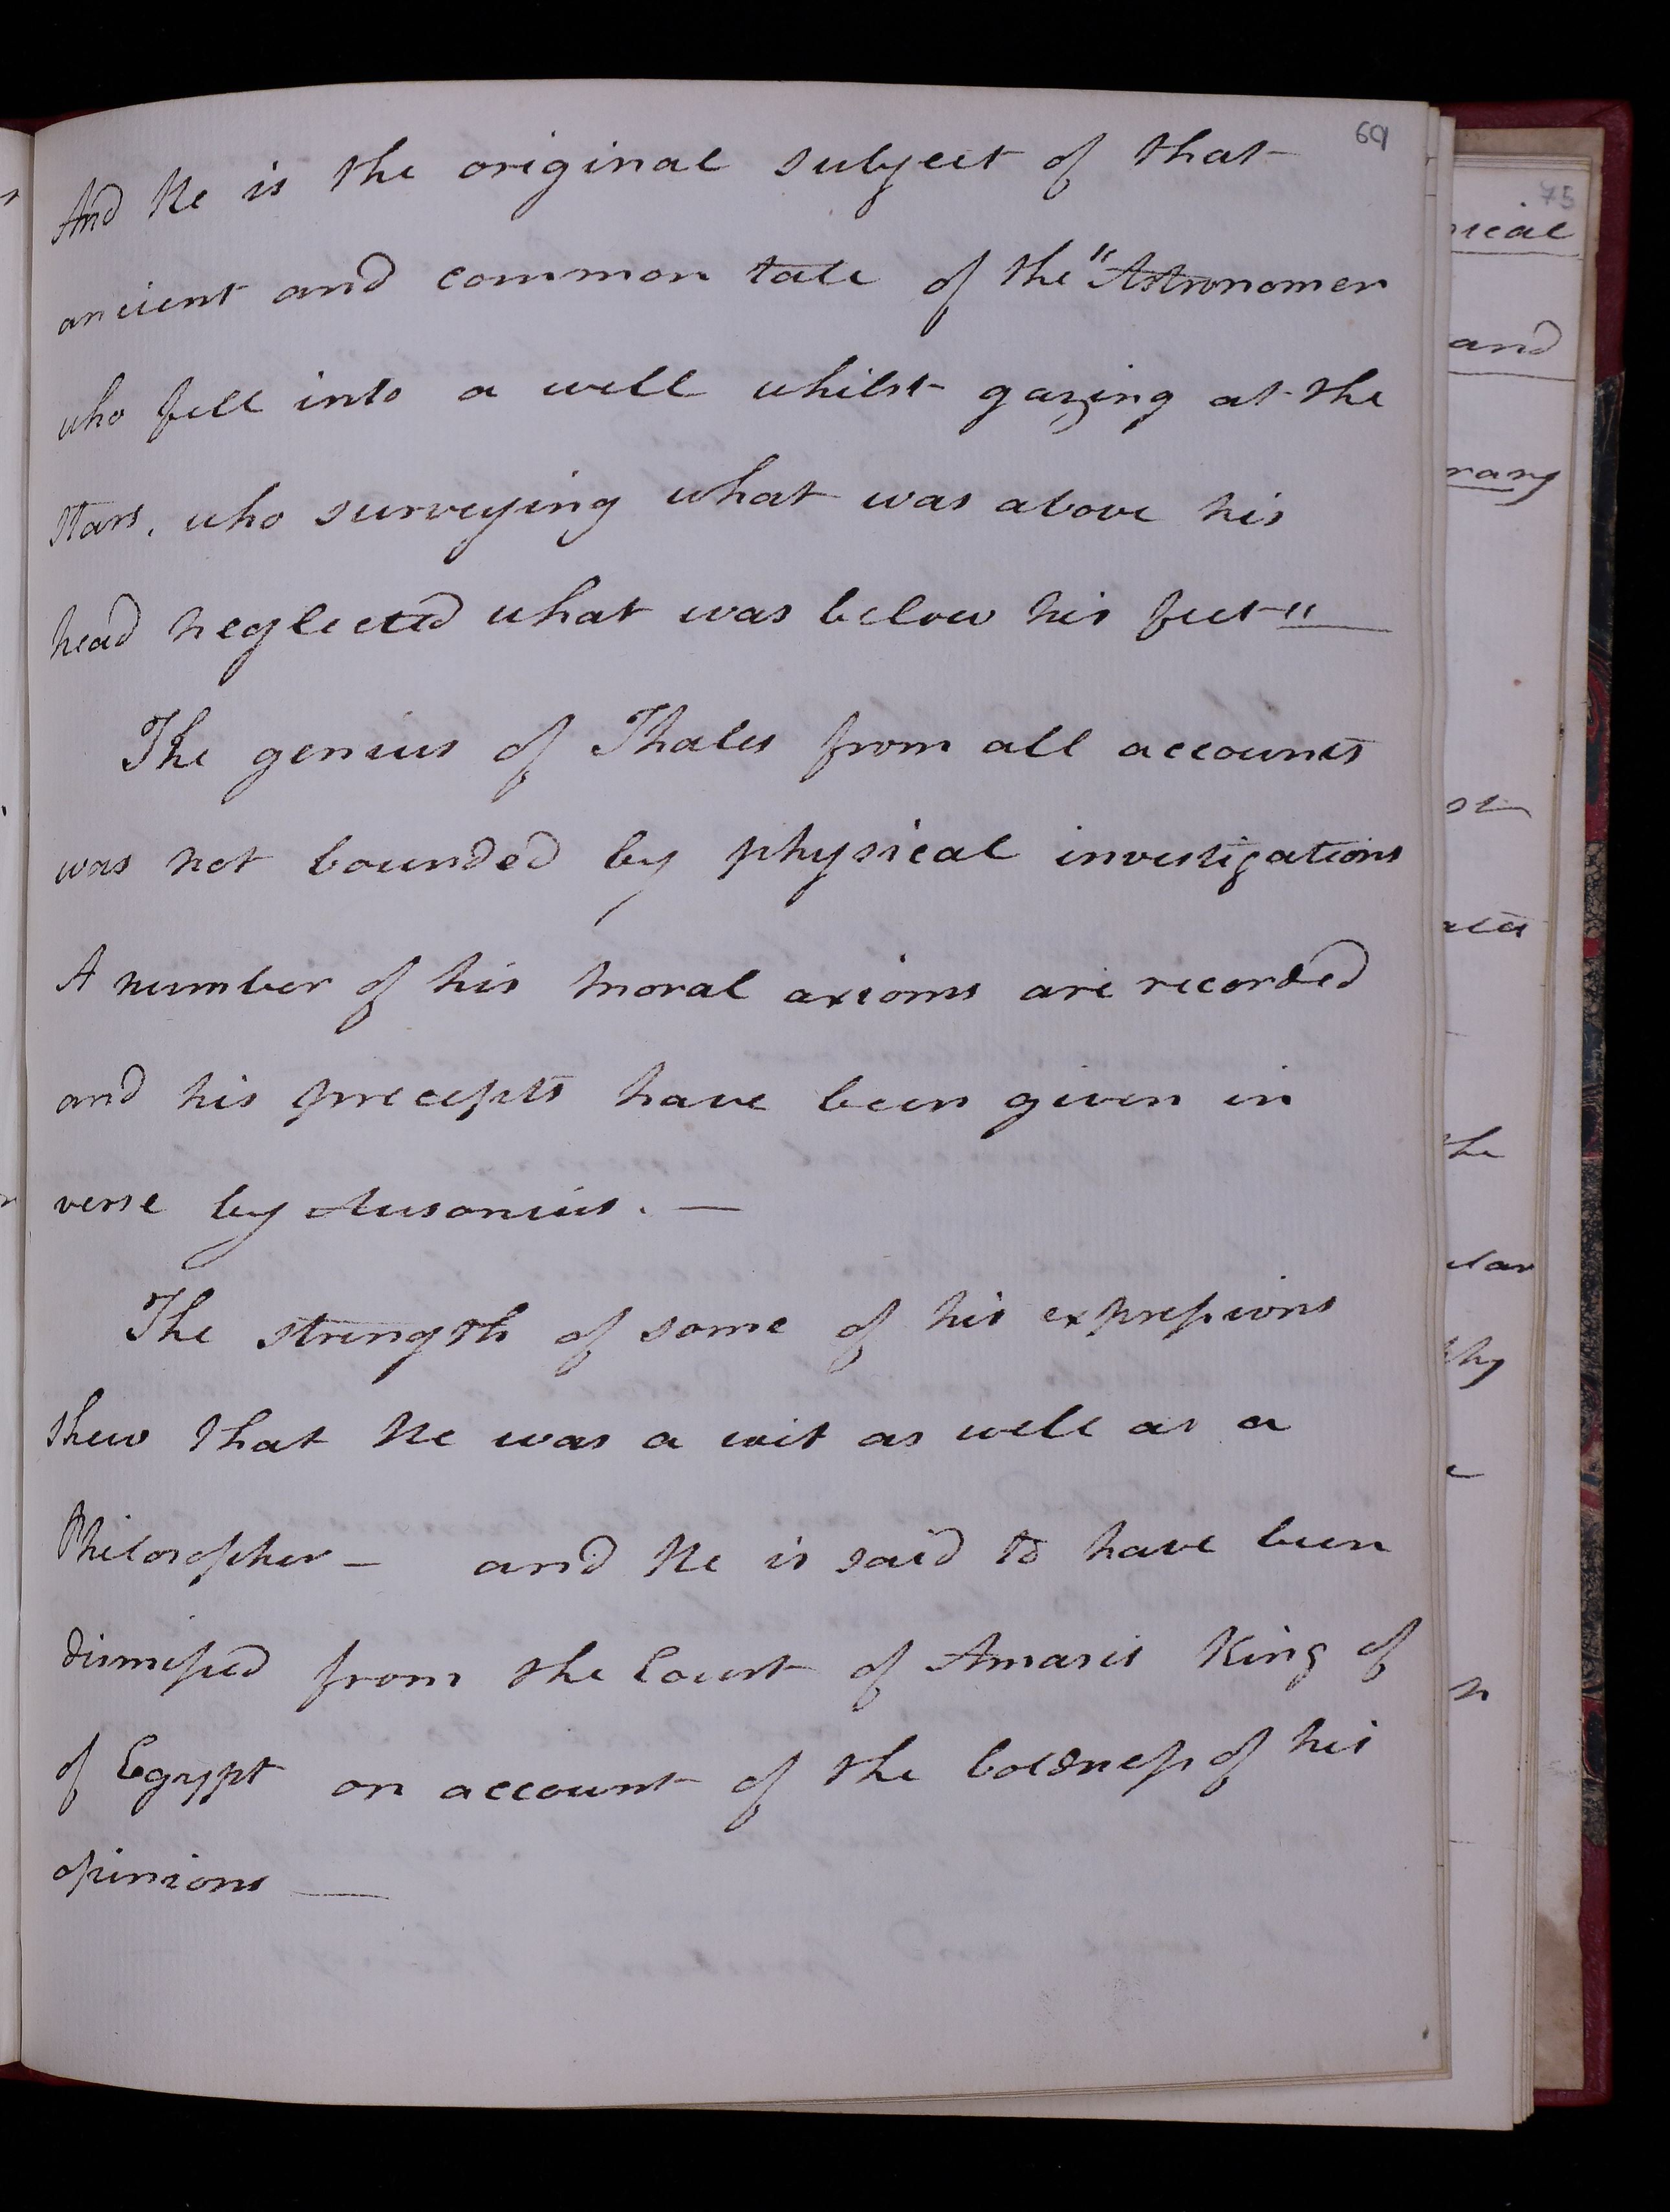 69
And He is the original subject of that
ancient and common tale of the "Astronomer
who fell into a well whilst gazing at the
Stars, who surveying what was above his
head neglected what was below his feet"
The genius of Thales from all accounts
was not bounded by physical investigations
A number of his moral axioms are recorded
and his precepts have been given in
verse by Ausonius. —
The strength of some of his expressions
shew that He was a wit as well as a
Philosopher – and He is said to have been
dismissed from the Court of Amasis King of
of Egypt on account of the boldness of his
opinions —
75
and
the